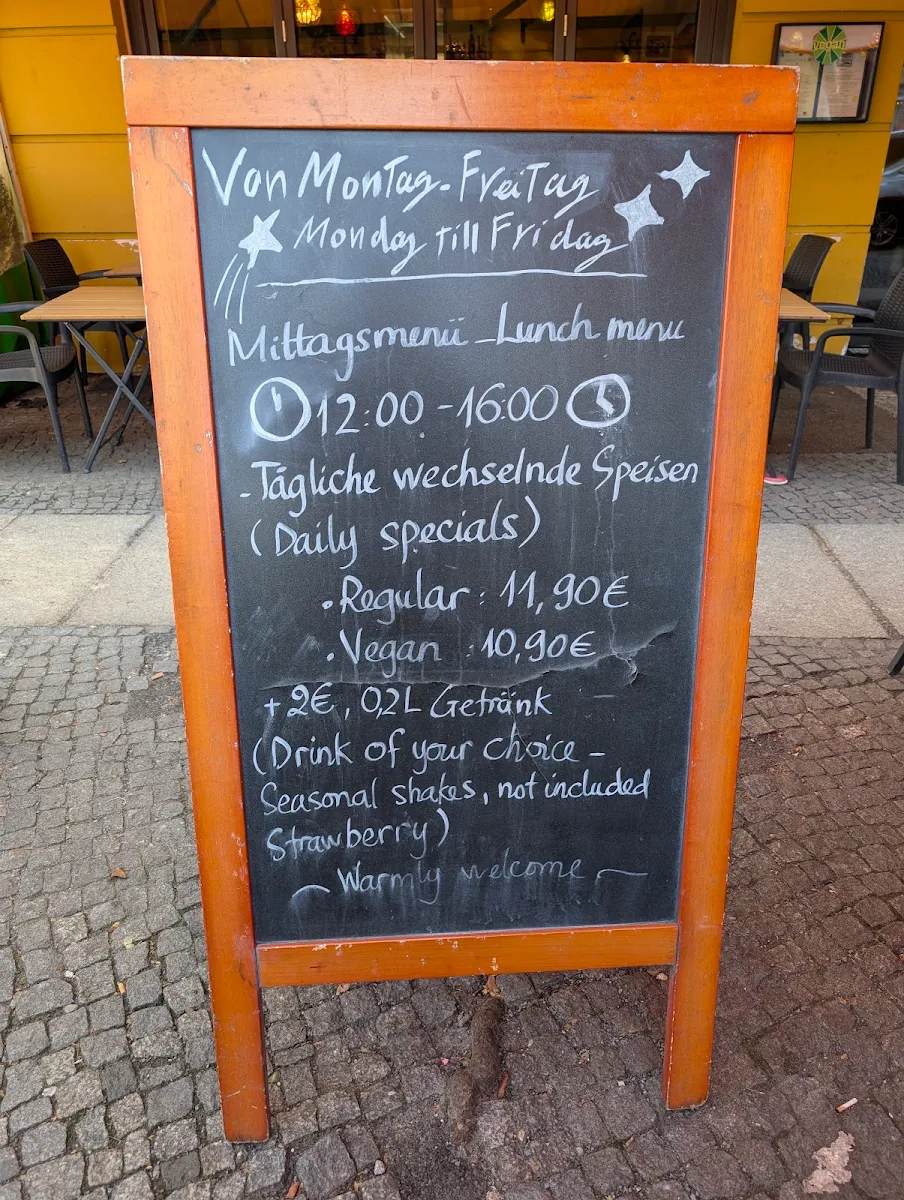 vegan
Von Montag - Freitag
Monday till Friday
Mittagsmenü - Lunch menu
12:00 - 16:00
- Tägliche wechselnde Speisen
(Daily specials)
• Regular : 11,90€
• Vegan : 10,90€
+ 2€, 0,2L Getränk
(Drink of your choice -
Seasonal shakes, not included
Strawberry)
~ Warmly welcome ~